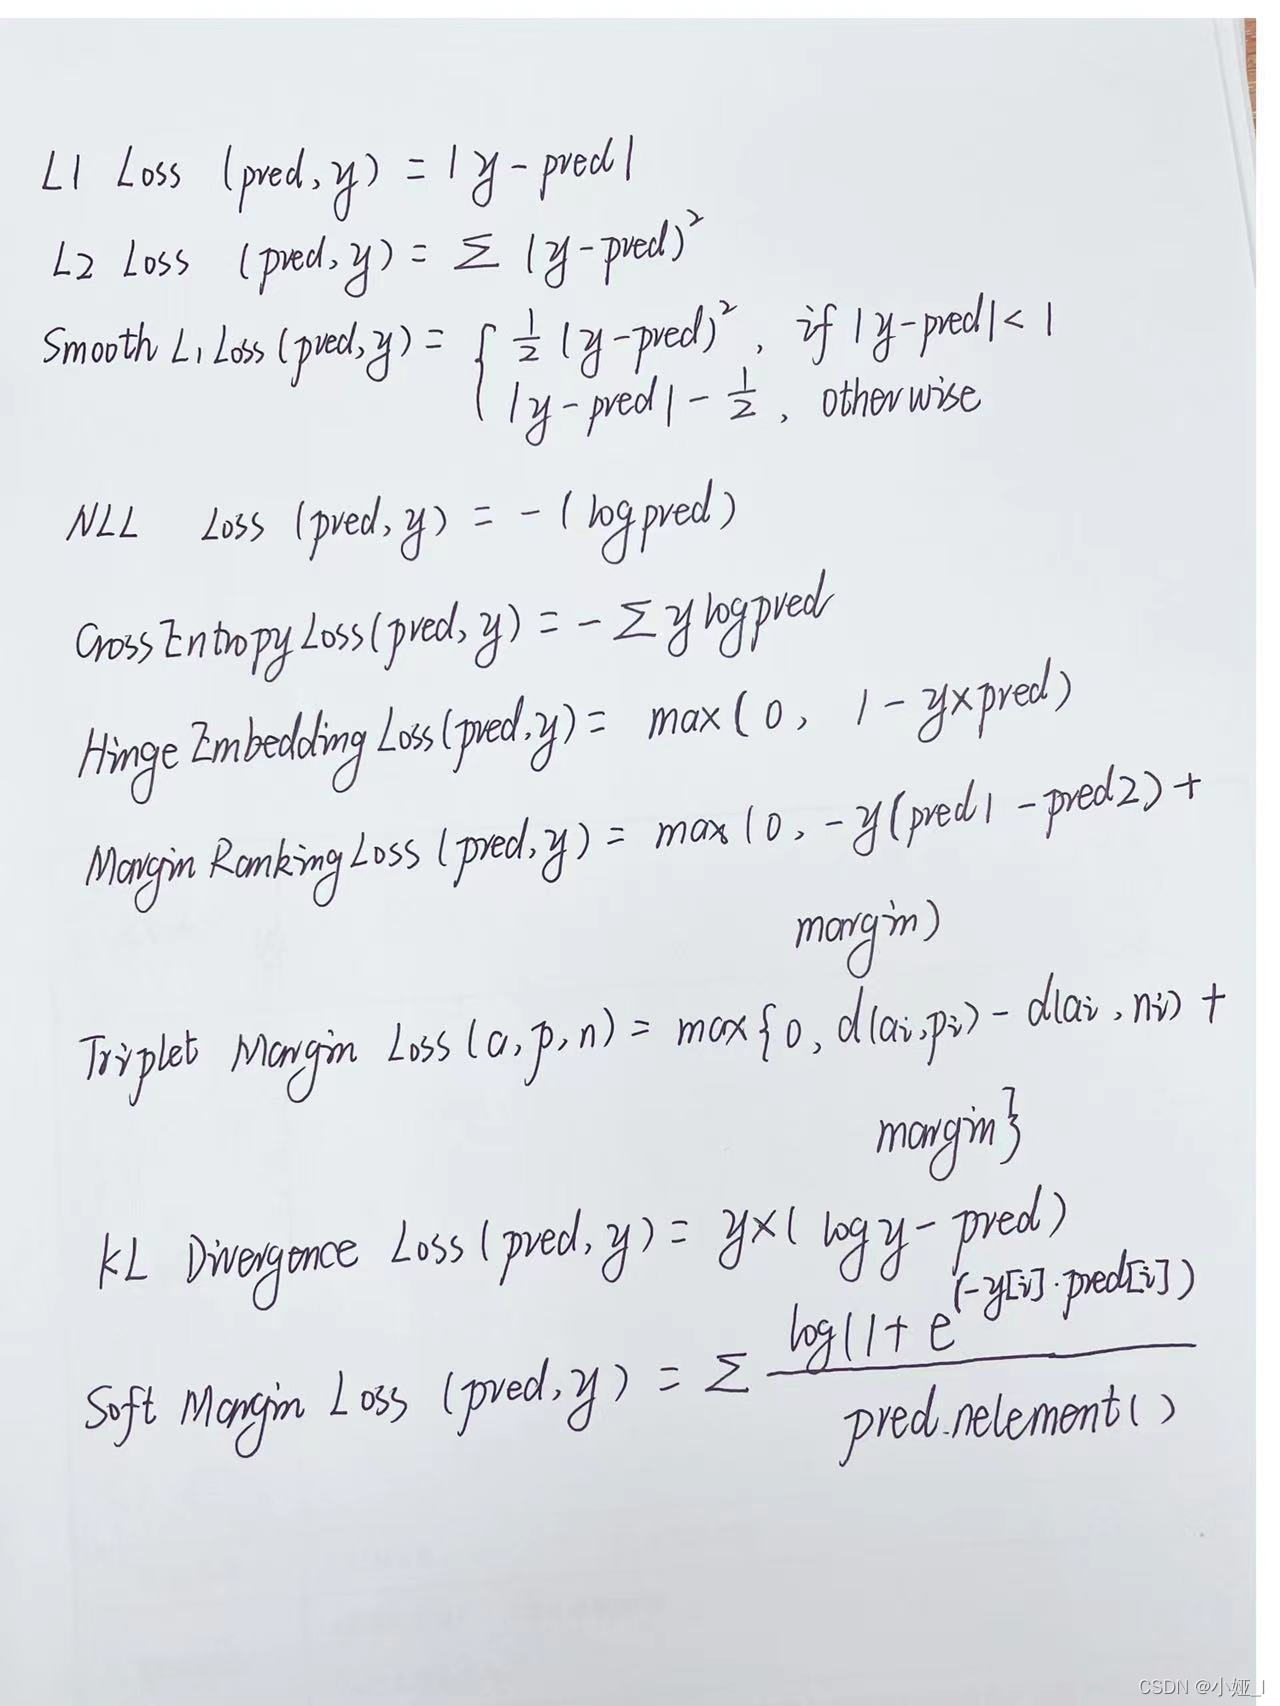 L1 Loss (pred, y) = |y - pred|
L2 Loss (pred, y) = Σ (y - pred)²
Smooth L1 Loss (pred, y) = { ½ (y - pred)², if |y - pred| < 1
|y - pred| - ½, otherwise
NLL Loss (pred, y) = - (log pred)
Cross Entropy Loss (pred, y) = - Σ y log pred
Hinge Embedding Loss (pred, y) = max (0, 1 - y × pred)
Margin Ranking Loss (pred, y) = max (0, - y (pred1 - pred2) +
margin)
Triplet Margin Loss (a, p, n) = max {0, d(ai, pi) - d(ai, ni) +
margin}
KL Divergence Loss (pred, y) = y × (log y - pred)
Soft Margin Loss (pred, y) = Σ log(1 + e^(-y[i]·pred[i])
pred.nelement()
CSDN @小娅_l